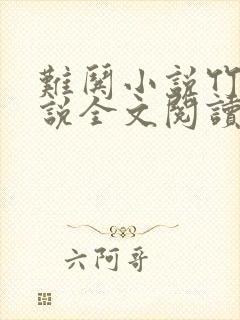 難関小説竹
説全文閱讀
六阿哥